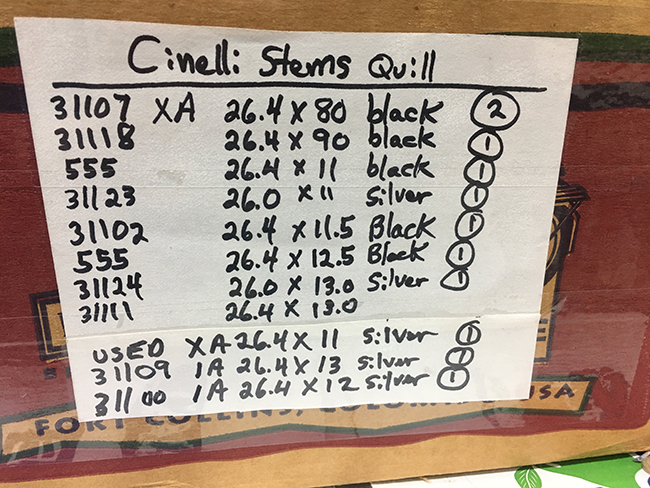 Cinelli Stems Quill
31107 XA 26.4 x 80 black 2
31118 26.4 x 90 black 1
555 26.4 x 11 black 1
31123 26.0 x 11 silver 1
31102 26.4 x 11.5 Black 1
555 26.4 x 12.5 Black 1
31124 26.0 x 13.0 silver 1
31111 26.4 x 13.0
USED XA 26.4 x 11 silver 1
31109 1A 26.4 x 13 silver 1
31100 1A 26.4 x 12 silver 1
FORT COLLINS, USA